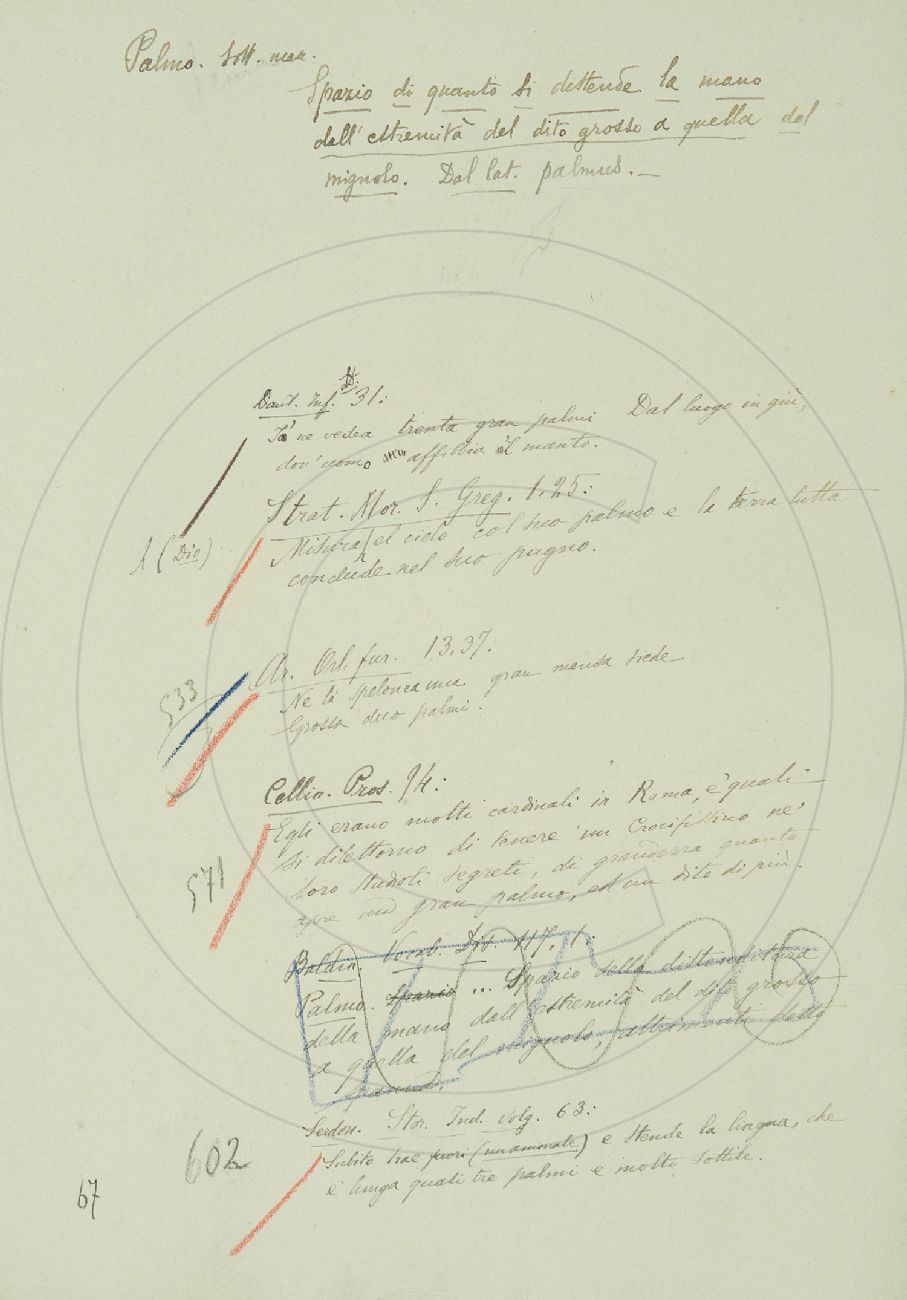 Palmo. Sost. mas.
Spazio di quanto si distende la mano
dall'estremità del dito grosso a quella del
mignolo. Dal lat. palmus.—
Dant. Inf. 31:
Io ne vedea trenta gran palmi Dal luogo in giù,
dov'uomo affibbia il manto.
Strat. Mor. S. Greg. 1.25:
1 (Dio)
Misura el cielo col suo palmo e la terra tutta
conchude nel suo pugno.
Ar. Orl. fur. 13.37:
533
Ne la spelonca una gran mensa siede
Grossa duo palmi.
Cellin. Pros. 94:
Egli erano molti cardinali in Roma, e' quali
si dilettorno di tenere un Crocifissino ne'
571
loro studioli segreti, di grandezza quanto
apre un gran palmo, ed un dito di più.
Baldin. Vocab. Dis. 117, 1:
Palmo. Spazio ... Spazio della distenditura
della mano dall'estremità del dito grosso
a quella del mignolo, altrimenti detto
Serdon. Stor. Ind. volg. 63:
602
Subito trae fuori (un animale) e stende la lingua, che
è lunga quasi tre palmi e molto sottile.
67